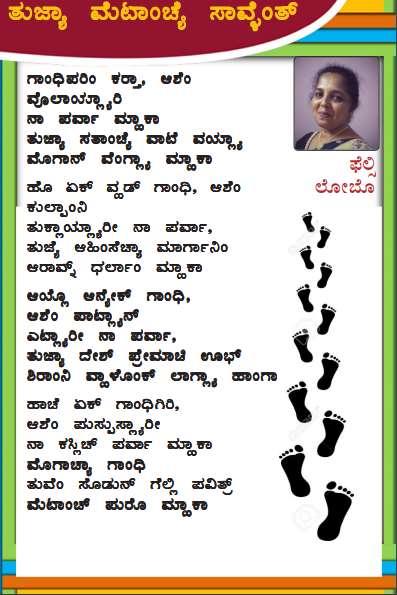 ತುಜ್ಯಾ ಮೆಟಾಂಚ್ಯೆ ಸಾವ್ಳೆಂತ್
ಗಾಂಧಿಪರಿಂ ಕರ್ತಾ, ಆಶೆಂ
ವೊಲಾಯ್ಲ್ಯಾರಿ
ನಾ ಪರ್ವಾ ಮ್ಹಾಕಾ
ತುಜ್ಯಾ ಸತಾಂಚ್ಯೆ ವಾಟೆ ವಯ್ಲ್ಯಾ
ಮೊಗಾನ್ ವೆಂಗ್ಲ್ಯಾ ಮ್ಹಾಕಾ
ಹೊ ಏಕ್ ವ್ಹಡ್ ಗಾಂಧಿ, ಆಶೆಂ
ಕುಲ್ಪಾಂನಿ
ತುಕ್ಲಾಯ್ಲ್ಯಾರೀ ನಾ ಪರ್ವಾ,
ತುಜ್ಯೆ ಆಹಿಂಸೆಚ್ಯಾ ಮಾರ್ಗಾನಿಂ
ಆರಾವ್ನ್ ಧರ್ಲಾಂ ಮ್ಹಾಕಾ
ಆಯ್ಲೊ ಆನ್ಯೇಕ್ ಗಾಂಧಿ,
ಆಶೆಂ ಪಾಟ್ಲ್ಯಾನ್
ಎಟ್ಲ್ಯಾರೀ ನಾ ಪರ್ವಾ,
ತುಜ್ಯಾ ದೇಶ್ ಪ್ರೇಮಾಚಿ ಊಭ್
ಶಿರಾಂನಿ ವ್ಹಾಳೊಂಕ್ ಲಾಗ್ಲ್ಯಾ ಹಾಂಗಾ
ಹಾಚೆ ಏಕ್ ಗಾಂಧಿಗಿರಿ,
ಆಶೆಂ ಪುಸ್ಪುಸ್ಲ್ಯಾರೀ
ನಾ ಕಸ್ಲಿಚ್ ಪರ್ವಾ ಮ್ಹಾಕಾ
ಮೊಗಾಚ್ಯಾ ಗಾಂಧಿ
ತುವೆಂ ಸೊಡುನ್ ಗೆಲ್ಲಿ ಪವಿತ್ರ್
ಮೆಟಾಂಚ್ ಪುರೊ ಮ್ಹಾಕಾ
ಫೆಲ್ಸಿ
ಲೋಬೊ